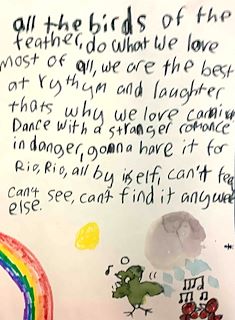 all the birds of the
feather, do what we love
most of all, we are the best
at rythym and laughter
thats why we love carniv
Dance with a stranger romance
in danger, gonna have it for
Rio, Rio, all by itself, can't fee
can't see, can't find it anywee
else.